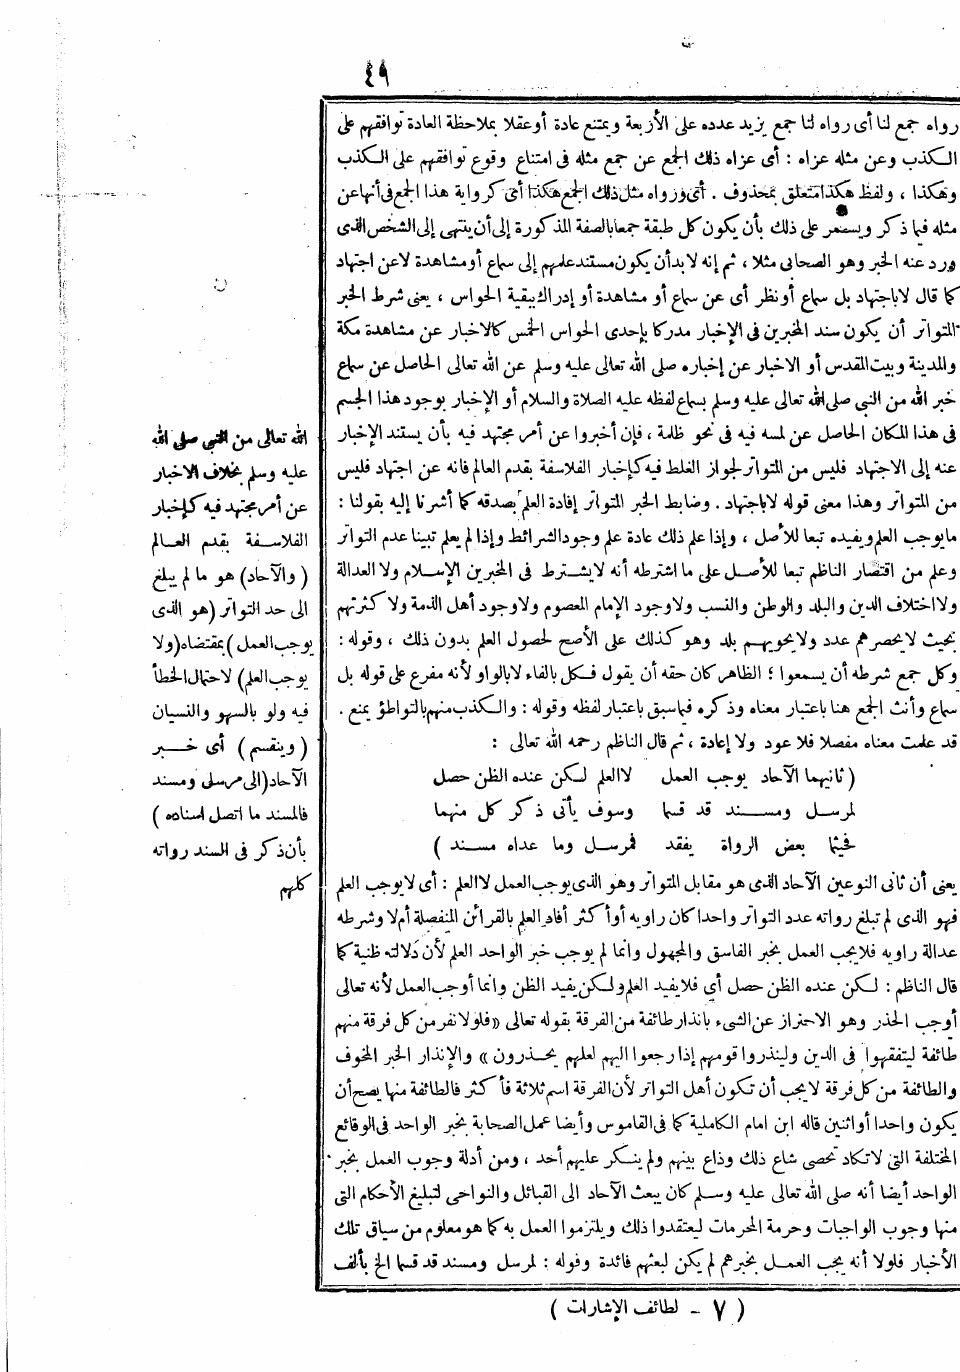 ٤٩
رواه جمع لنا أى رواه لنا جمع يزيد عدده على الأربعة ويمتنع عادة أوعقلا بملاحظة العادة توافقهم على
الكذب وعن مثله عزاه : أى عزاه ذلك الجمع عن جمع مثله فى امتناع وقوع توافقهم على الكذب
وهكذا ، ولفظ هكذا متعلق بمحذوف . أى ورواه مثل ذلك الجمع هكذا أى كرواية هذا الجمع فى أنها عن
مثله فيما ذكر ويستمر على ذلك بأن يكون كل طبقة جمعا بالصفة المذكورة إلى أن ينتهى إلى الشخص الذى
ورد عنه الخبر وهو الصحابى مثلا ، ثم إنه لابد أن يكون مستند علمهم إلى سماع أو مشاهدة لا عن اجتهاد
كما قال لاباجتهاد بل سماع أو نظر أى عن سماع أو مشاهدة أو إدراك ببقية الحواس ، يعنى شرط الخبر
المتواتر أن يكون سند المخبرين فى الإخبار مدركا بإحدى الحواس الخمس كالاخبار عن مشاهدة مكة
والمدينة وبيت المقدس أو الاخبار عن إخباره صلى الله تعالى عليه وسلم عن الله تعالى الحاصل عن سماع
خبر الله من النبي صلى الله تعالى عليه وسلم بسماع لفظه عليه الصلاة والسلام أو الإخبار بوجود هذا الجسم
فى هذا المكان الحاصل عن لمسه فيه فى نحو ظلمة ، فإن أخبروا عن أمر مجتهد فيه بأن يستند الإخبار
عنه إلى الاجتهاد فليس من المتواتر لجواز الغلط فيه كإخبار الفلاسفة بقدم العالم فانه عن اجتهاد فليس
من المتواتر وهذا معنى قوله لا باجتهاد . وضابط الخبر المتواتر إفادة العلم بصدقه كما أشرنا إليه بقولنا :
مايوجب العلم ويفيده تبعا للأصل ، وإذا علم ذلك عادة علم وجود الشرائط وإذا لم يعلم تبينا عدم التواتر
وعلم من اقتصار الناظم تبعا للأصل على ما اشترطه أنه لايشترط فى المخبرين الإسلام ولا العدالة
ولا اختلاف الدين والبلد والوطن والنسب ولاوجود الإمام المعصوم ولاوجود أهل الذمة ولا كثرتهم
بحيث لا يحصرهم عدد ولا يحويهم بلد وهو كذلك على الأصح لحصول العلم بدون ذلك ، وقوله :
وكل جمع شرطه أن يسمعوا ؛ الظاهر كان حقه أن يقول فكل بالفاء لا بالواو لأنه مفرع على قوله بل
سماع وأنث الجمع هنا باعتبار معناه وذكره فيما سبق باعتبار لفظه وقوله : والكذب منهم بالتواطؤ يمنع .
قد علمت معناه مفصلا فلا عود ولا إعادة ، ثم قال الناظم رحمه الله تعالى :
( ثانيهما الآحاد يوجب العمل لا العلم لكن عنده الظن حصل
لمرسل ومسند قد قسما وسوف يأتى ذكر كل منهما
فحيثما بعض الرواة يفقد فمرسل وما عداه مسند )
يعنى أن ثانى النوعين الآحاد الذى هو مقابل المتواتر وهو الذى يوجب العمل لا العلم : أى لا يوجب العلم
فهو الذى لم تبلغ رواته عدد التواتر واحدا كان راويه أو أكثر أفاد العلم بالقرائن المنفصلة أم لا وشرطه
عدالة راويه فلا يجب العمل بخبر الفاسق والمجهول وانما لم يوجب خبر الواحد العلم لأن دلالته ظنية كما
قال الناظم : لكن عنده الظن حصل أي فلا يفيد العلم ولكن يفيد الظن وانما أوجب العمل لأنه تعالى
أوجب الحذر وهو الاحتراز عن الشىء بانذار طائفة من الفرقة بقوله تعالى « فلولا نفر من كل فرقة منهم
طائفة ليتفقهوا فى الدين ولينذروا قومهم إذا رجعوا اليهم لعلهم يحذرون » والإنذار الخبر المخوف
والطائفة من كل فرقة لا يجب أن تكون أهل التواتر لأن الفرقة اسم ثلاثة فأكثر فالطائفة منها يصح أن
يكون واحدا أو اثنين قاله ابن امام الكاملية كما فى القاموس وأيضا عمل الصحابة بخبر الواحد فى الوقائع
المختلفة التى لا تكاد تحصى شاع ذلك وذاع بينهم ولم ينكر عليهم أحد ، ومن أدلة وجوب العمل بخبر
الواحد أيضا أنه صلى الله تعالى عليه وسلم كان يبعث الآحاد الى القبائل والنواحى لتبليغ الأحكام التى
منها وجوب الواجبات وحرمة المحرمات ليعتقدوا ذلك ويلتزموا العمل به كما هو معلوم من سياق تلك
الأخبار فلولا أنه يجب العمل بخبرهم لم يكن لبعثهم فائدة وقوله : لمرسل ومسند قد قسما الخ بألف
الله تعالى من النبي صلى الله
عليه وسلم بخلاف الاخبار
عن أمر مجتهد فيه كإخبار
الفلاسفة بقدم العالم
( والآحاد ) هو ما لم يبلغ
الى حد التواتر ( هو الذى
يوجب العمل ) بمقتضاه ( ولا
يوجب العلم ) لاحتمال الخطأ
فيه ولو بالسهو والنسيان
( وينقسم ) أى خبر
الآحاد ( الى مرسل ومسند
فالمسند ما اتصل اسناده )
بأن ذكر فى السند رواته
كلهم
( ٧ - لطائف الإشارات )